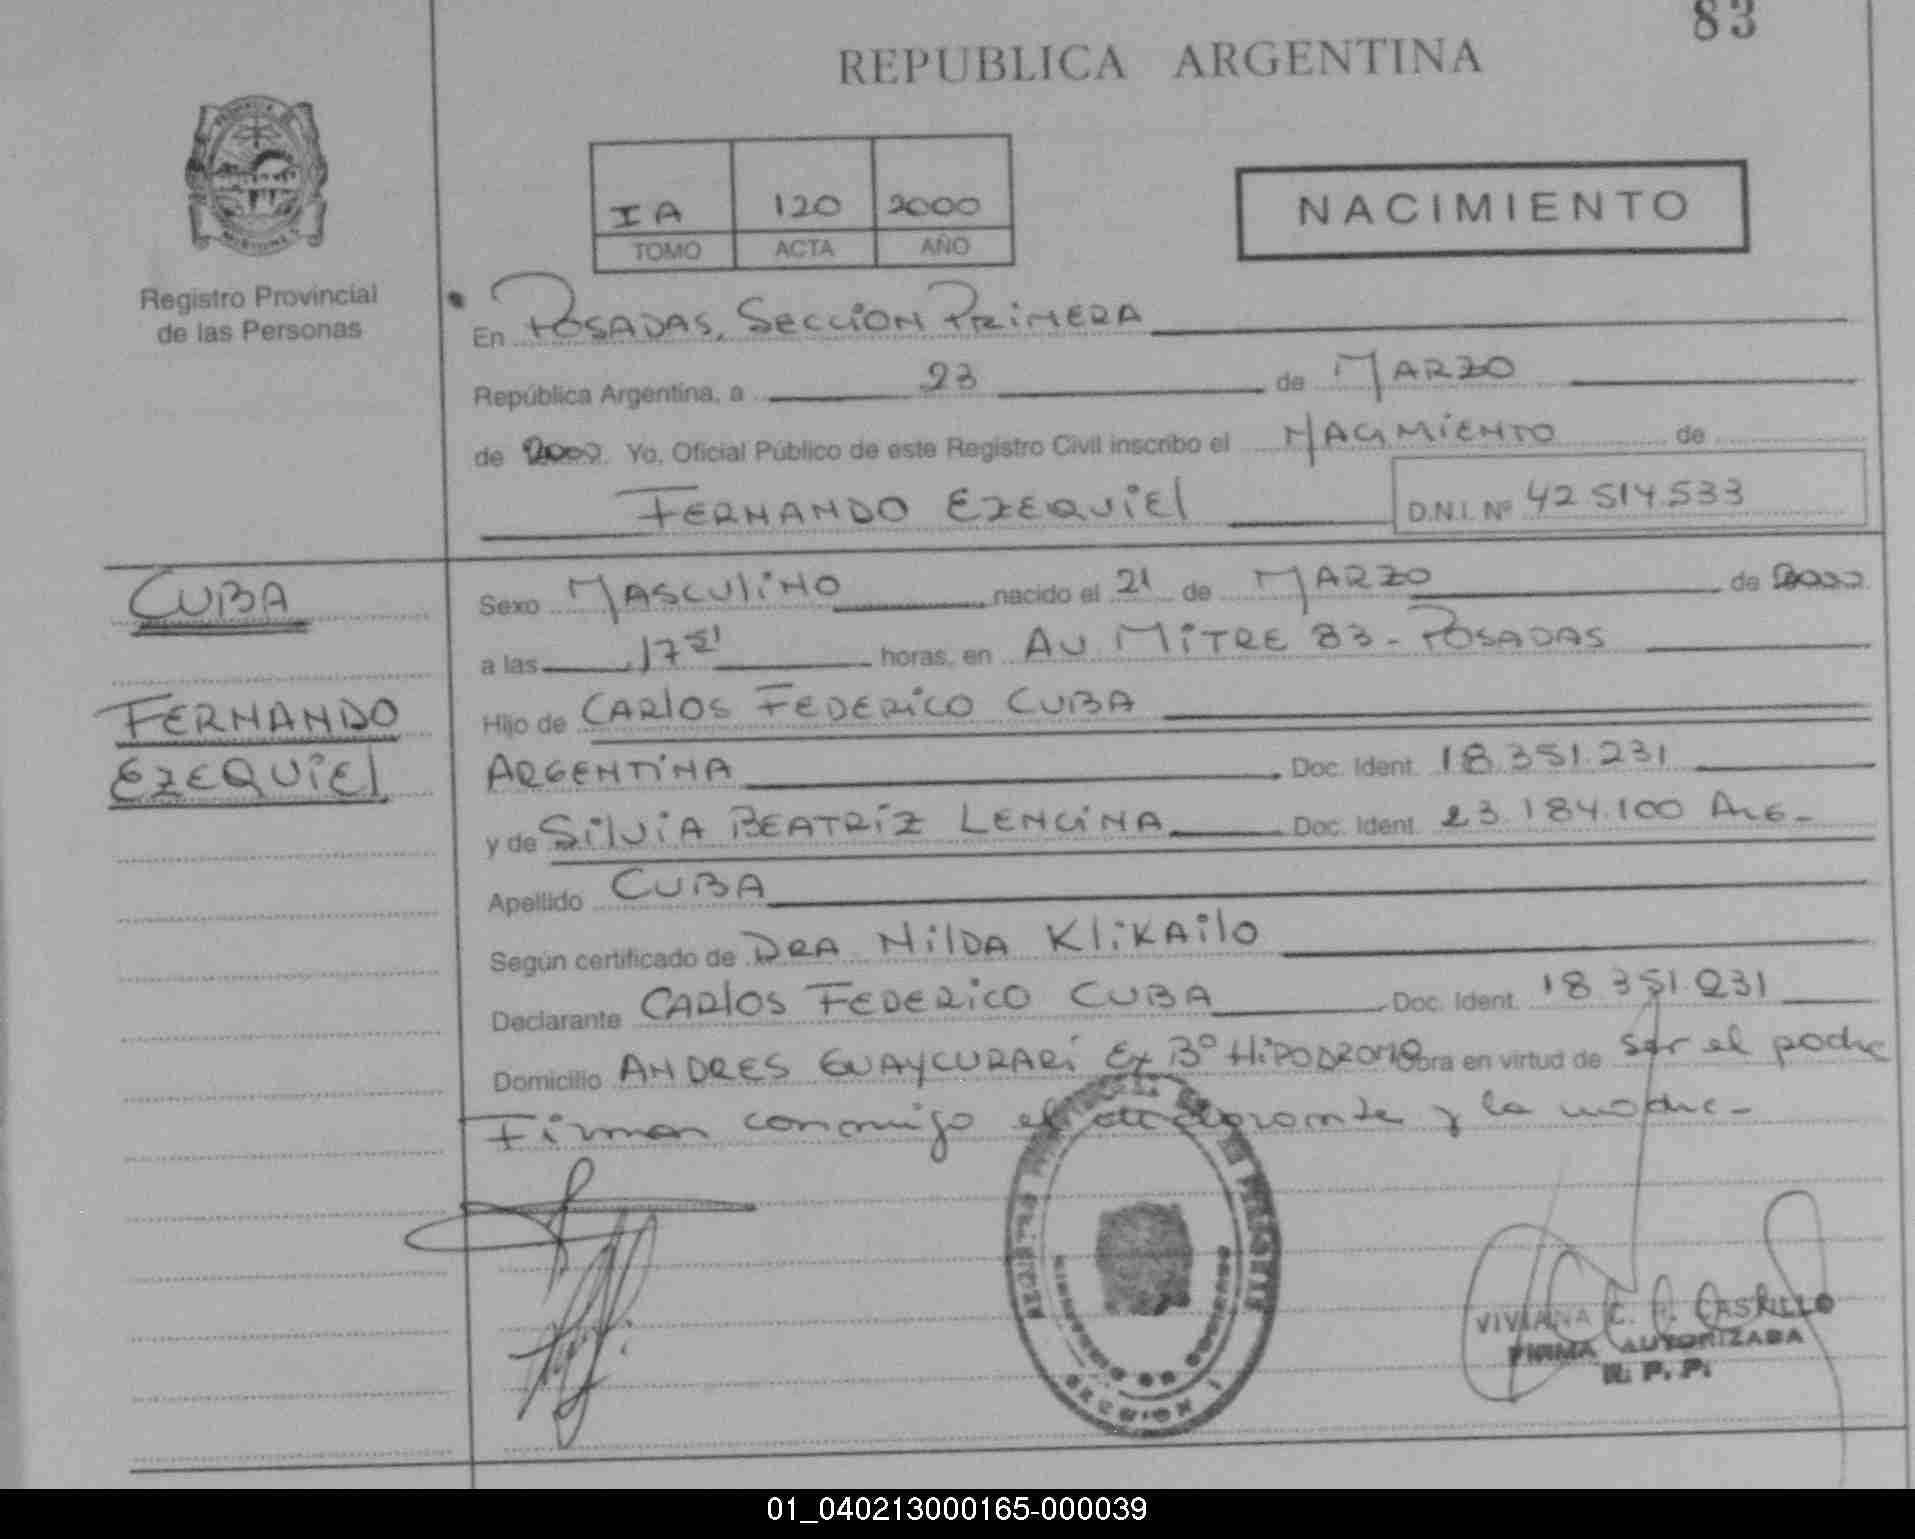 83
REPUBLICA ARGENTINA
IA 120 2000
TOMO ACTA AÑO
NACIMIENTO
Registro Provincial
de las Personas
En POSADAS, SECCION PRIMERA
República Argentina, a 23 de MARZO
de 2000. Yo, Oficial Público de este Registro Civil inscribo el NACIMIENTO de
FERNANDO EZEQUIEL D.N.I. Nº 42 514.533
CUBA
FERNANDO
EZEQUIEL
Sexo MASCULINO nacido el 21 de MARZO de 2000.
a las 17 51 horas, en AV MITRE 83 - POSADAS
Hijo de CARLOS FEDERICO CUBA
ARGENTINA Doc. Ident. 18.351.231
y de SILVIA BEATRIZ LENCINA Doc. Ident. 23.184.100 ARG-
Apellido CUBA
Según certificado de DRA NILDA KLIKAILO
Declarante CARLOS FEDERICO CUBA Doc. Ident. 18 351.231
Domicilio ANDRES GUAYCURARI EX Bº HIPODROMO Obra en virtud de ser el padre
Firman conmigo el declarante y la madre-
VIVIANA C. CASTILLO
FIRMA AUTORIZADA
R. P. P.
01_040213000165-000039